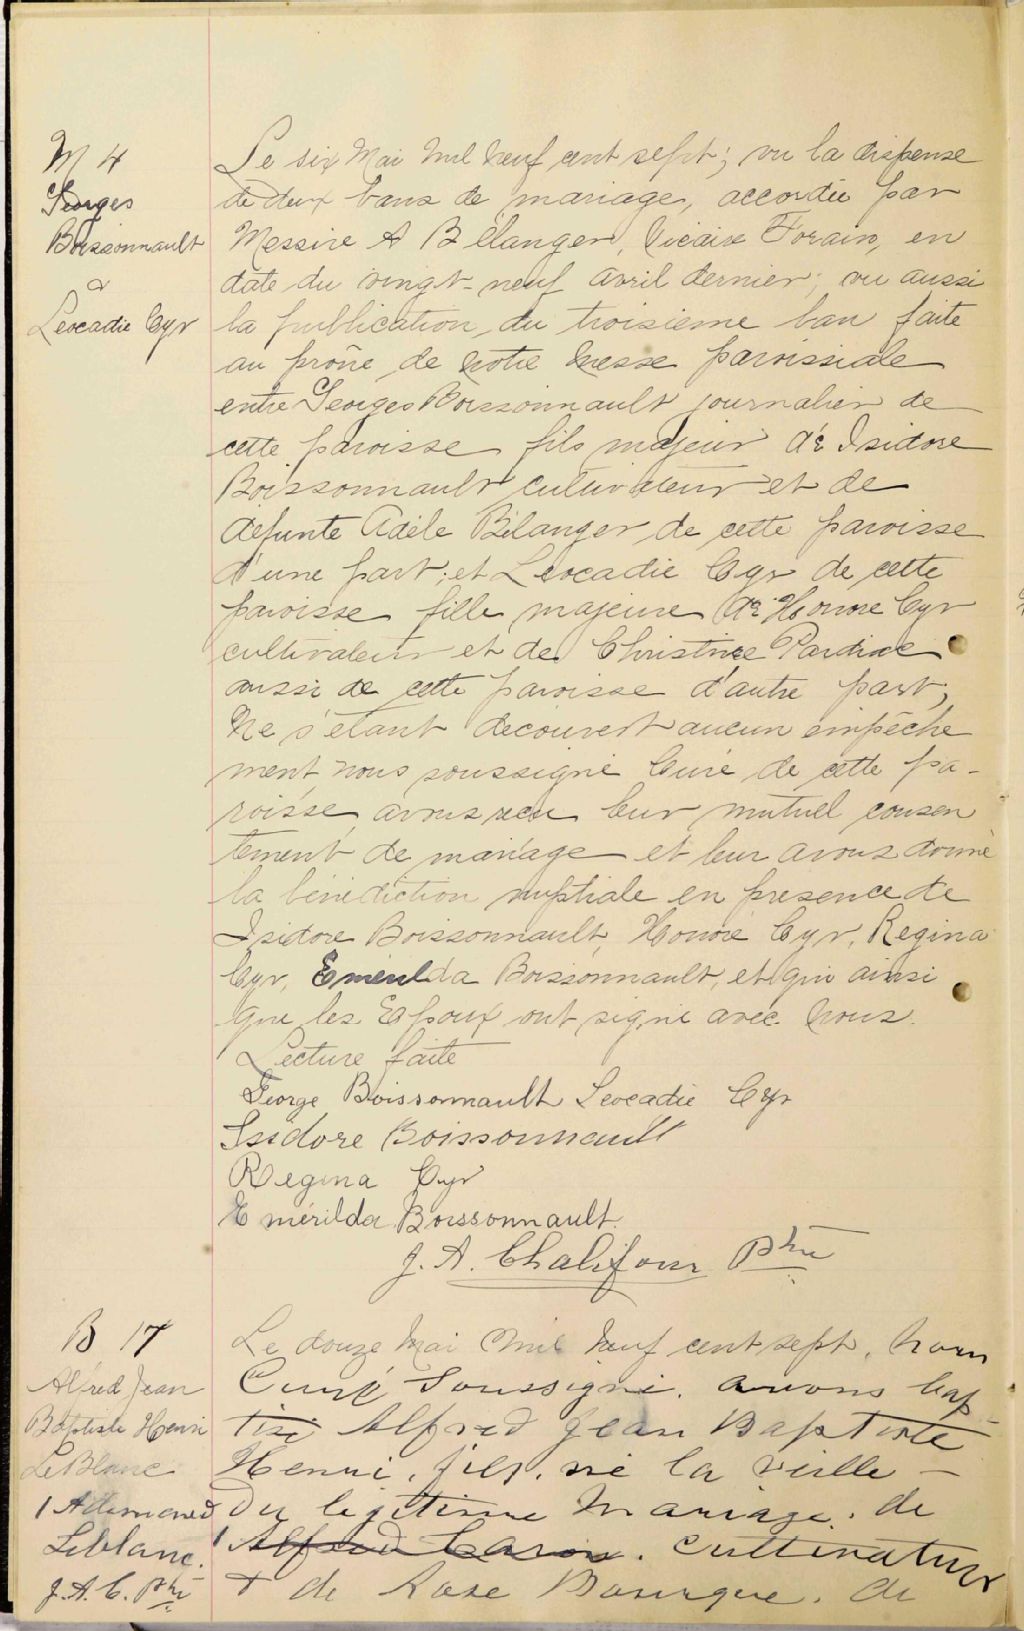 M 4
Georges
Boissonnault
&
Leocadie Cyr
Le six Mai Mil neuf cent sept; vu la dispense
de deux bans de mariage, accordée par
Messire A Bélanger, Vicaire Forain, en
date du vingt-neuf avril dernier; vu aussi
la publication du troisieme ban faite
au prône de notre Messe paroissiale
entre Georges Boissonnault journalier de
cette paroisse fils majeur de Isidore
Boissonnault cultivateur et de
defunte Adèle Bélanger de cette paroisse
d'une part; et Leocadie Cyr de cette
paroisse fille majeure de Honoré Cyr
cultivateur et de Christine
aussi de cette paroisse d'autre part;
Ne s'étant decouvert aucun empêche
ment, nous soussigné Curé de cette pa-
roisse avons reçu leur mutuel consen
tement de mariage et leur avons donné
la bénédiction nuptiale en presence de
Isidore Boissonnault, Honoré Cyr, Regina
Cyr, Emérilda Boissonnault, et qui ainsi
que les Epoux ont signé avec nous.
Lecture faite
George Boissonnault Leocadie Cyr
Isidore Boissonnault
Regina Cyr
Emérilda Boissonnault.
J. A. Chalifour Ptre
B 17
Alfred Jean
Baptiste Henri
LeBlanc
1 Ademard
Leblanc.
J. A. C. Ptre
Le douze Mai Mil neuf cent sept, nous
Curé Soussigné, avons bap
tisé Alfred Jean Baptiste
Henri, fils, né la veille –
du légitime Mariage, de
1 Alfred Caron, cultivateur
+ de Rose Bourque, de